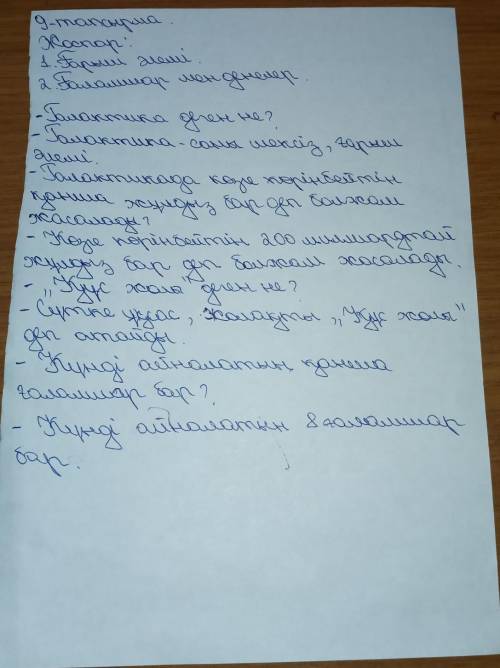 9-тапсырма.
Жоспар:
1. Ғарыш әлемі.
2. Ғаламшар мен денелер.
- Галактика деген не?
- Галактика - саны шексіз, ғарыш
әлемі.
- Галактикада көзге көрінбейтін
қанша жұлдыз бар деп болжам
жасалады?
- Көзге көрінбейтін 200 миллиардтай
жұлдыз бар деп болжам жасалады.
- „Құс жолы" деген не?
- Сүтке ұқсас, жолақты „Құс жолы"
деп атайды.
- Күнді айналатын қанша
ғаламшар бар?
- Күнді айналатын 8 ғаламшар
бар.